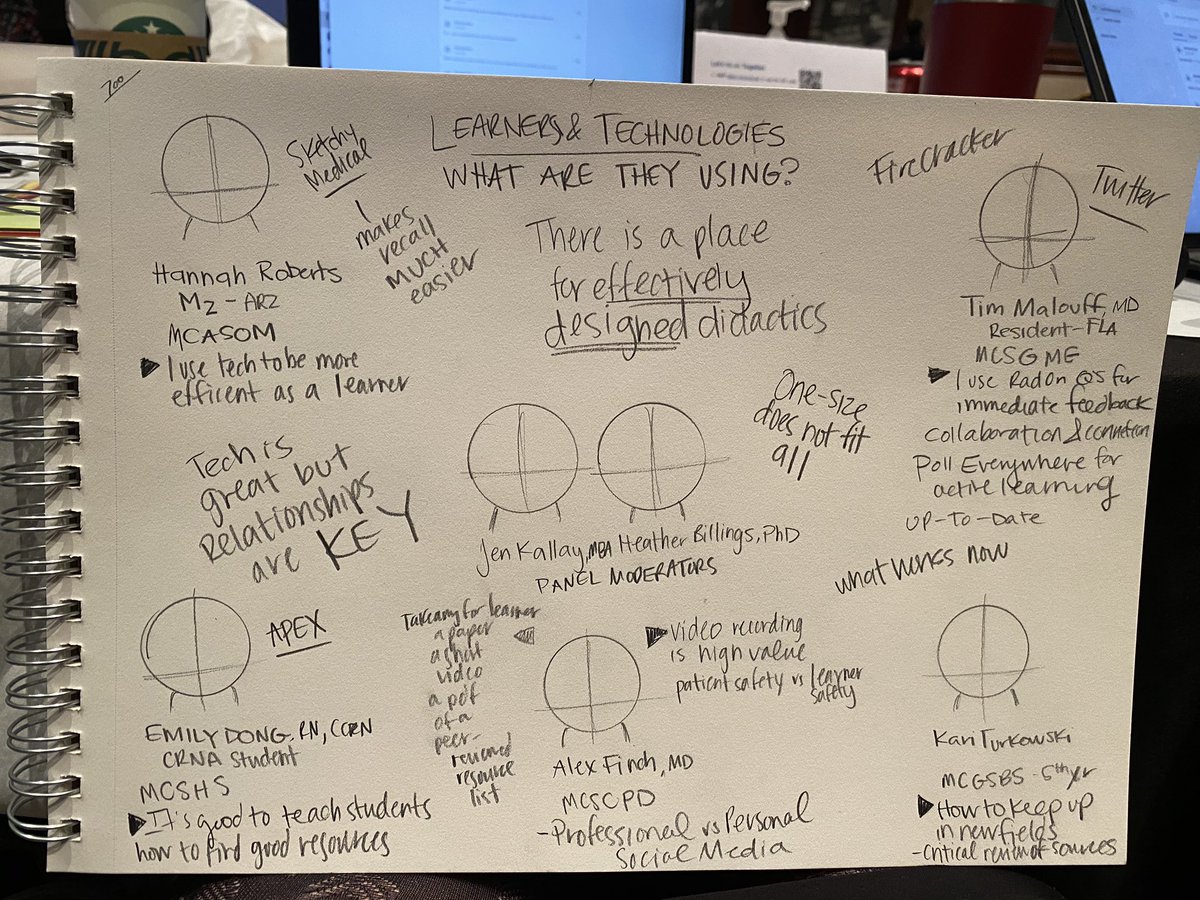 700
LEARNERS & TECHNOLOGIES
WHAT ARE THEY USING?
There is a place
for effectively
designed didactics
Sketchy
Medical
makes
recall
MUCH
easier
Hannah Roberts
M2 - ARZ
MCASOM
I use tech to be more
efficent as a learner
Firecracker
Twitter
Tim Malouff, MD
Resident - FLA
MCSGME
I use RadOn Qs for
immediate feedback
collaboration & connection
Poll Everywhere for
active learning
UP-TO-DATE
One-size
does not fit
all
Tech is
great but
Relationships
are KEY
Jen Kallay, MBA Heather Billings, PhD
PANEL MODERATORS
what works now
APEX
EMILY DONG, RN, CCRN
CRNA Student
MCSHS
It's good to teach students
how to find good resources
Takeaway for learner
a paper
a short
video
a pdf
of a
peer-
reviewed
resource
list
Video recording
is high value
patient safety vs learner
safety
Alex Finch, MD
MCSCPD
- Professional vs Personal
Social Media
Kari Turkowski
MCGSBS - 5th yr
How to keep up
in new fields
- critical review of sources